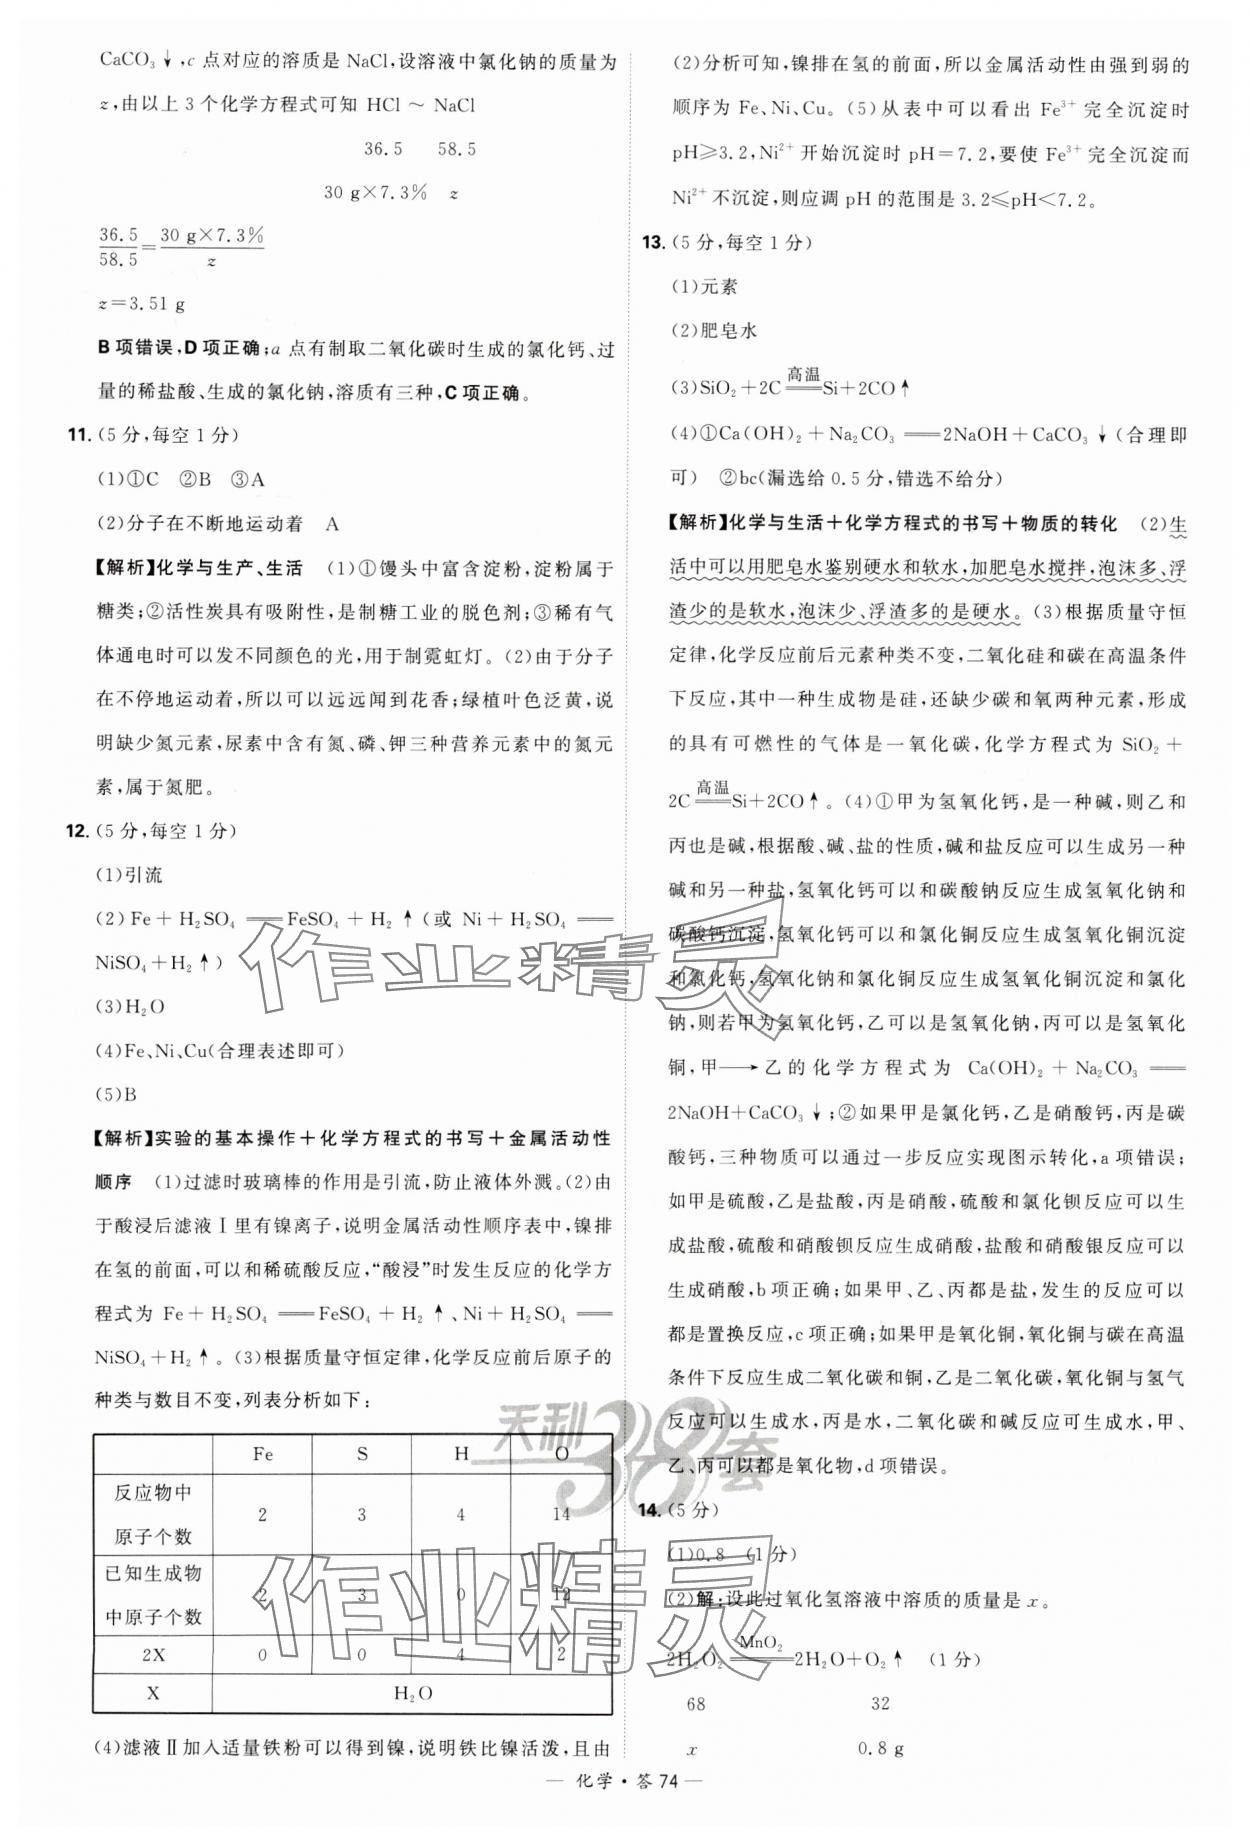 CaCO₃↓,c 点对应的溶质是 NaCl,设溶液中氯化钠的质量为
z,由以上 3 个化学方程式可知 HCl ～ NaCl
36.5 58.5
30 g×7.3% z
36.5/58.5=30 g×7.3%/z
z=3.51 g
B 项错误,D 项正确;a 点有制取二氧化碳时生成的氯化钙、过
量的稀盐酸、生成的氯化钠,溶质有三种,C 项正确。
11. (5 分,每空 1 分)
(1)①C ②B ③A
(2)分子在不断地运动着 A
【解析】化学与生产、生活 (1)①馒头中富含淀粉,淀粉属于
糖类;②活性炭具有吸附性,是制糖工业的脱色剂;③稀有气
体通电时可以发不同颜色的光,用于制霓虹灯。(2)由于分子
在不停地运动着,所以可以远远闻到花香;绿植叶色泛黄,说
明缺少氮元素,尿素中含有氮、磷、钾三种营养元素中的氮元
素,属于氮肥。
12. (5 分,每空 1 分)
(1)引流
(2)Fe+H₂SO₄══FeSO₄+H₂↑(或 Ni+H₂SO₄══
NiSO₄+H₂↑)
(3)H₂O
(4)Fe、Ni、Cu(合理表述即可)
(5)B
【解析】实验的基本操作+化学方程式的书写+金属活动性
顺序 (1)过滤时玻璃棒的作用是引流,防止液体外溅。(2)由
于酸浸后滤液Ⅰ里有镍离子,说明金属活动性顺序表中,镍排
在氢的前面,可以和稀硫酸反应,“酸浸”时发生反应的化学方
程式为 Fe+H₂SO₄══FeSO₄+H₂↑、Ni+H₂SO₄══
NiSO₄+H₂↑。(3)根据质量守恒定律,化学反应前后原子的
种类与数目不变,列表分析如下:
Fe S H O
反应物中
原子个数 2 3 4 14
已知生成物
中原子个数 2 3 0 12
2X 0 0 4 2
X H₂O
(4)滤液Ⅱ加入适量铁粉可以得到镍,说明铁比镍活泼,且由
(2)分析可知,镍排在氢的前面,所以金属活动性由强到弱的
顺序为 Fe、Ni、Cu。(5)从表中可以看出 Fe³⁺ 完全沉淀时
pH≥3.2,Ni²⁺ 开始沉淀时 pH=7.2,要使 Fe³⁺ 完全沉淀而
Ni²⁺ 不沉淀,则应调 pH 的范围是 3.2≤pH<7.2。
13. (5 分,每空 1 分)
(1)元素
(2)肥皂水
(3)SiO₂+2C 高温══ Si+2CO↑
(4)①Ca(OH)₂+Na₂CO₃══2NaOH+CaCO₃↓(合理即
可) ②bc(漏选给 0.5 分,错选不给分)
【解析】化学与生活+化学方程式的书写+物质的转化 (2)生
活中可以用肥皂水鉴别硬水和软水,加肥皂水搅拌,泡沫多、浮
渣少的是软水,泡沫少、浮渣多的是硬水。(3)根据质量守恒
定律,化学反应前后元素种类不变,二氧化硅和碳在高温条件
下反应,其中一种生成物是硅,还缺少碳和氧两种元素,形成
的具有可燃性的气体是一氧化碳,化学方程式为 SiO₂+
2C 高温══ Si+2CO↑。(4)①甲为氢氧化钙,是一种碱,则乙和
丙也是碱,根据酸、碱、盐的性质,碱和盐反应可以生成另一种
碱和另一种盐,氢氧化钙可以和碳酸钠反应生成氢氧化钠和
碳酸钙沉淀,氢氧化钙可以和氯化铜反应生成氢氧化铜沉淀
和氯化钙,氢氧化钠和氯化铜反应生成氢氧化铜沉淀和氯化
钠,则若甲为氢氧化钙,乙可以是氢氧化钠,丙可以是氢氧化
铜,甲→乙的化学方程式为 Ca(OH)₂+Na₂CO₃══
2NaOH+CaCO₃↓;②如果甲是氯化钙,乙是硝酸钙,丙是碳
酸钙,三种物质可以通过一步反应实现图示转化,a 项错误;
如甲是硫酸,乙是盐酸,丙是硝酸,硫酸和氯化钡反应可以生
成盐酸,硫酸和硝酸钡反应生成硝酸,盐酸和硝酸银反应可以
生成硝酸,b 项正确;如果甲、乙、丙都是盐,发生的反应可以
都是置换反应,c 项正确;如果甲是氧化铜,氧化铜与碳在高温
条件下反应生成二氧化碳和铜,乙是二氧化碳,氧化铜与氢气
反应可以生成水,丙是水,二氧化碳和碱反应可生成水,甲、
乙、丙可以都是氧化物,d 项错误。
14. (5 分)
(1)0.8 (1 分)
(2)解:设此过氧化氢溶液中溶质的质量是 x。
2H₂O₂ MnO₂══ 2H₂O+O₂↑ (1 分)
68 32
x 0.8 g
— 化学·答 74 —
作业精灵
天利38套
作业精灵